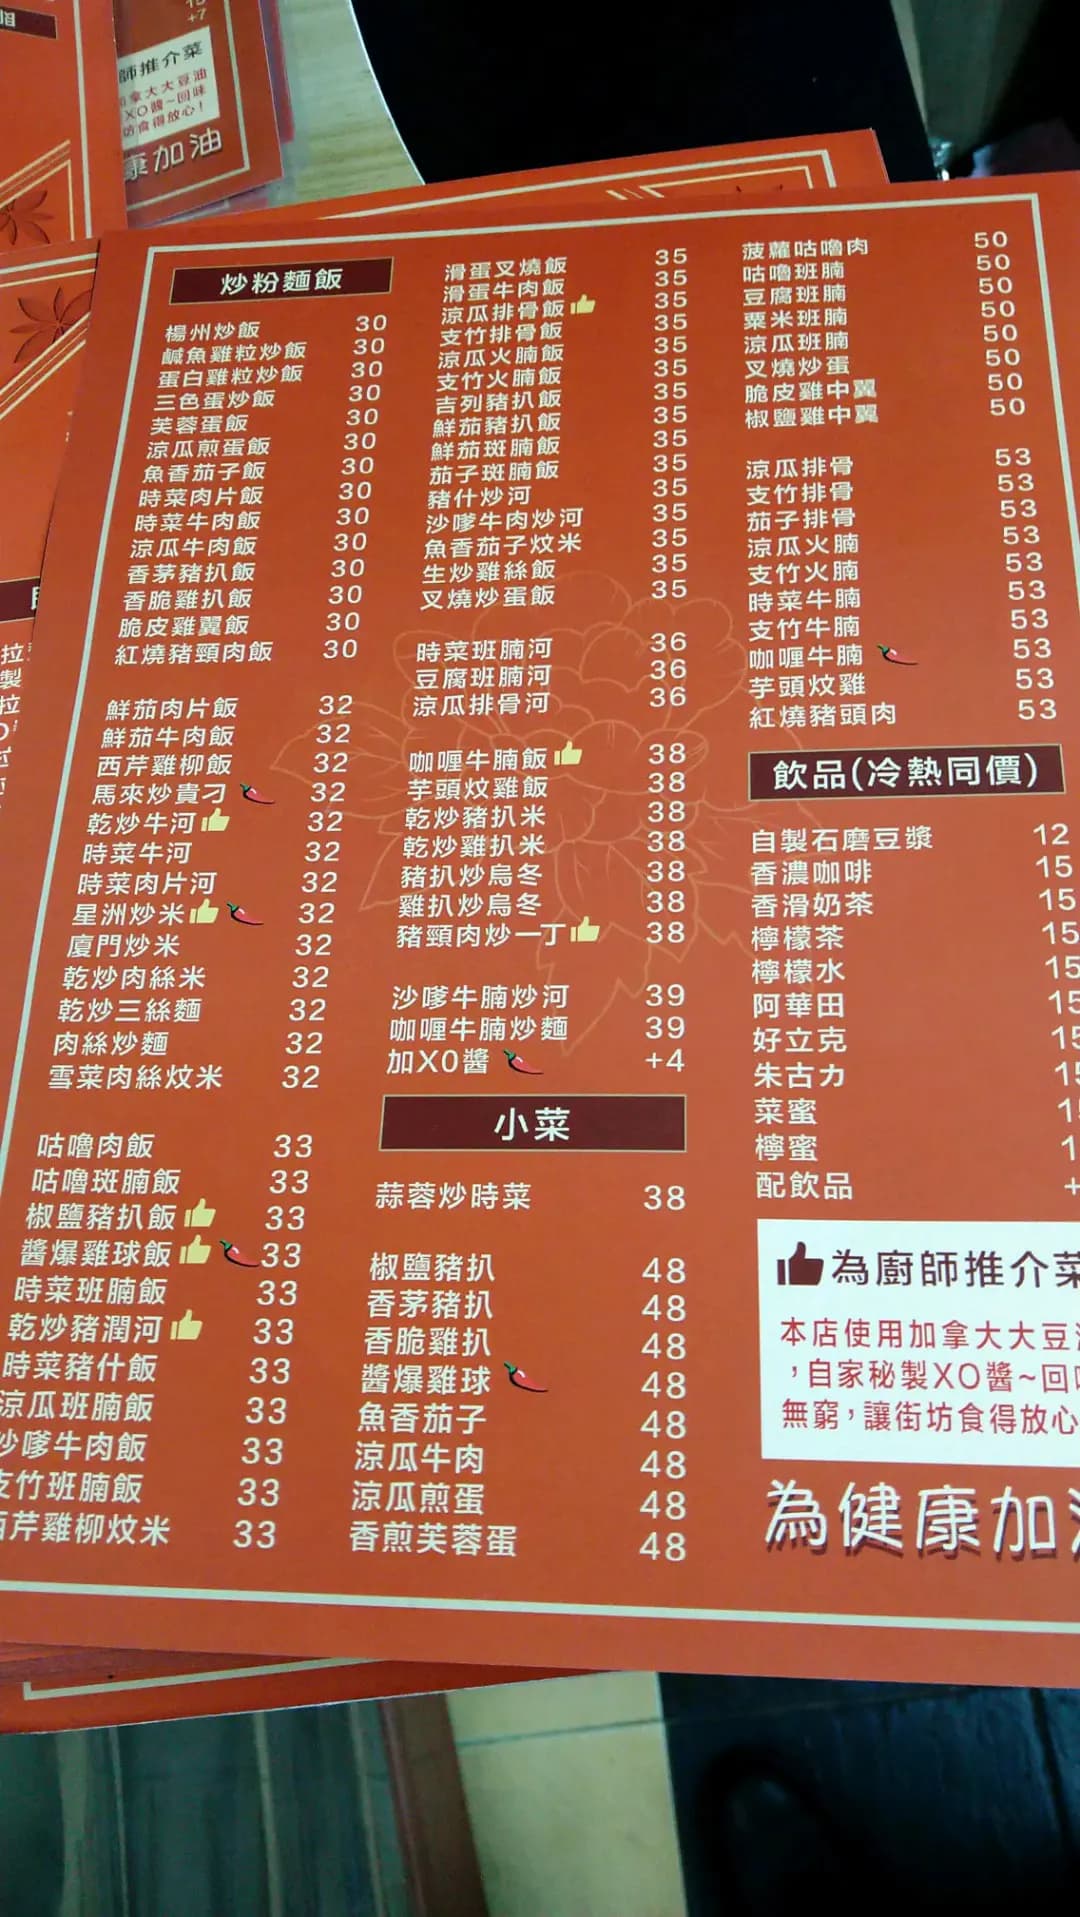 師推介菜
拿大大豆油
XO醬~回味
坊食得放心!
康加油
+7
炒粉麵飯
楊州炒飯 30
鹹魚雞粒炒飯 30
蛋白雞粒炒飯 30
三色蛋炒飯 30
芙蓉蛋飯 30
涼瓜煎蛋飯 30
魚香茄子飯 30
時菜肉片飯 30
時菜牛肉飯 30
涼瓜牛肉飯 30
香茅豬扒飯 30
香脆雞扒飯 30
脆皮雞翼飯 30
紅燒豬頸肉飯 30
鮮茄肉片飯 32
鮮茄牛肉飯 32
西芹雞柳飯 32
馬來炒貴刁 32
乾炒牛河 32
時菜牛河 32
時菜肉片河 32
星洲炒米 32
廈門炒米 32
乾炒肉絲米 32
乾炒三絲麵 32
肉絲炒麵 32
雪菜肉絲炆米 32
咕嚕肉飯 33
咕嚕斑腩飯 33
椒鹽豬扒飯 33
醬爆雞球飯 33
時菜班腩飯 33
乾炒豬潤河 33
時菜豬什飯 33
涼瓜班腩飯 33
沙嗲牛肉飯 33
支竹班腩飯 33
西芹雞柳炆米 33
滑蛋叉燒飯 35
滑蛋牛肉飯 35
涼瓜排骨飯 35
支竹排骨飯 35
涼瓜火腩飯 35
支竹火腩飯 35
吉列豬扒飯 35
鮮茄豬扒飯 35
鮮茄斑腩飯 35
茄子斑腩飯 35
豬什炒河 35
沙嗲牛肉炒河 35
魚香茄子炆米 35
生炒雞絲飯 35
叉燒炒蛋飯 35
時菜班腩河 36
豆腐班腩河 36
涼瓜排骨河 36
咖喱牛腩飯 38
芋頭炆雞飯 38
乾炒豬扒米 38
乾炒雞扒米 38
豬扒炒烏冬 38
雞扒炒烏冬 38
豬頸肉炒一丁 38
沙嗲牛腩炒河 39
咖喱牛腩炒麵 39
加XO醬 +4
小菜
蒜蓉炒時菜 38
椒鹽豬扒 48
香茅豬扒 48
香脆雞扒 48
醬爆雞球 48
魚香茄子 48
涼瓜牛肉 48
涼瓜煎蛋 48
香煎芙蓉蛋 48
菠蘿咕嚕肉 50
咕嚕班腩 50
豆腐班腩 50
粟米班腩 50
涼瓜班腩 50
叉燒炒蛋 50
脆皮雞中翼 50
椒鹽雞中翼 50
涼瓜排骨 53
支竹排骨 53
茄子排骨 53
涼瓜火腩 53
支竹火腩 53
時菜牛腩 53
支竹牛腩 53
咖喱牛腩 53
芋頭炆雞 53
紅燒豬頭肉 53
飲品(冷熱同價)
自製石磨豆漿 12
香濃咖啡 15
香滑奶茶 15
檸檬茶 15
檸檬水 15
阿華田 15
好立克 15
朱古力 15
菜蜜 1
檸蜜 1
配飲品 +
為廚師推介菜
本店使用加拿大大豆油
,自家秘製XO醬~回味
無窮,讓街坊食得放心
為健康加油